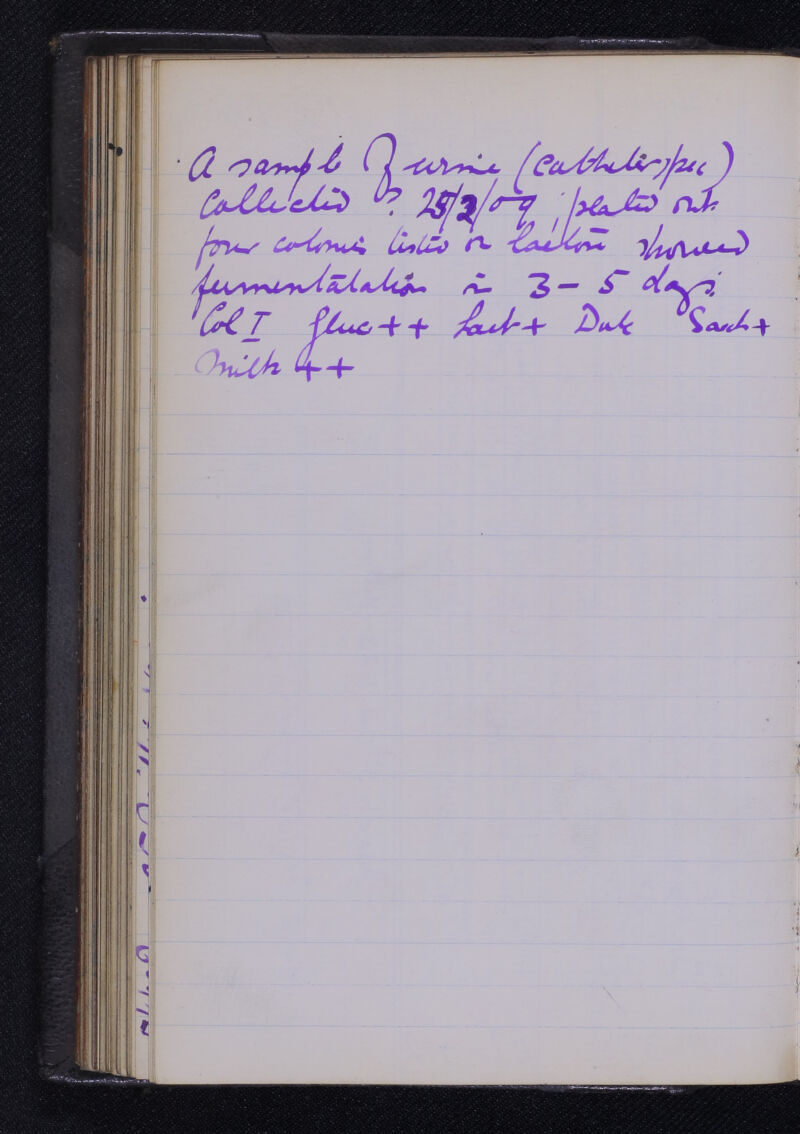 A sample of urine (catheter spec)
collected ? 25/2/09, plated out
four colonies tested on lactose showed
fermentatation in 3 - 5 days.
Col I Gluc ++ Lact + Dulc Sacch +
Milk ++